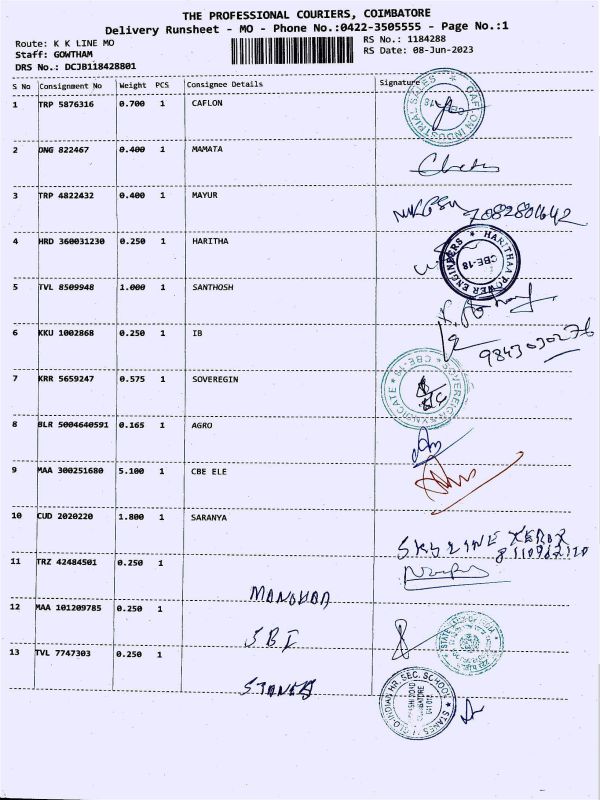 THE PROFESSIONAL COURIERS, COIMBATORE
Delivery Runsheet - MO - Phone No.:0422-3505555 - Page No.:1
Route: K K LINE MO
RS No.: 1184288
Staff: GOWTHAM
RS Date: 08-Jun-2023
DRS No.: DCJB118428801
S No Consignment No Weight PCS Consignee Details Signature
1 TRP 5876316 0.700 1 CAFLON
2 DNG 822467 0.400 1 MAMATA
3 TRP 4822432 0.400 1 MAYUR
4 HRD 360031230 0.250 1 HARITHA
HARITHAA POWER ENGINEERS ★ CBE-18
5 TVL 8509948 1.000 1 SANTHOSH
6 KKU 1002868 0.250 1 IB
9843030276
7 KRR 5659247 0.575 1 SOVEREGIN
SOVEREIGN SYNDICATE ★ CBE-18 ★
8 BLR 5004640591 0.165 1 AGRO
9 MAA 300251680 5.100 1 CBE ELE
10 CUD 2020220 1.800 1 SARANYA
SKYLINE XEROX
11 TRZ 42484501 0.250 1 MANOHAR
12 MAA 101209785 0.250 1 SBI
13 TVL 7747303 0.250 1 STANES